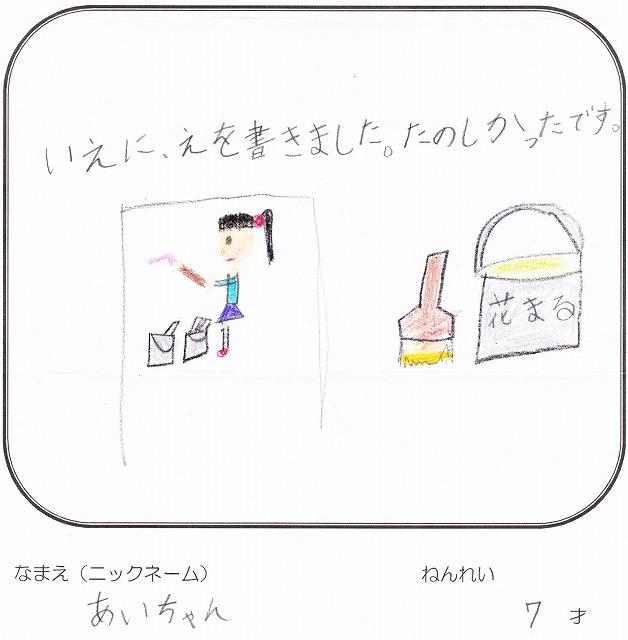 いえに、えを書きました。たのしかったです。
花まる
なまえ（ニックネーム）
ねんれい
あいちゃん
7 才